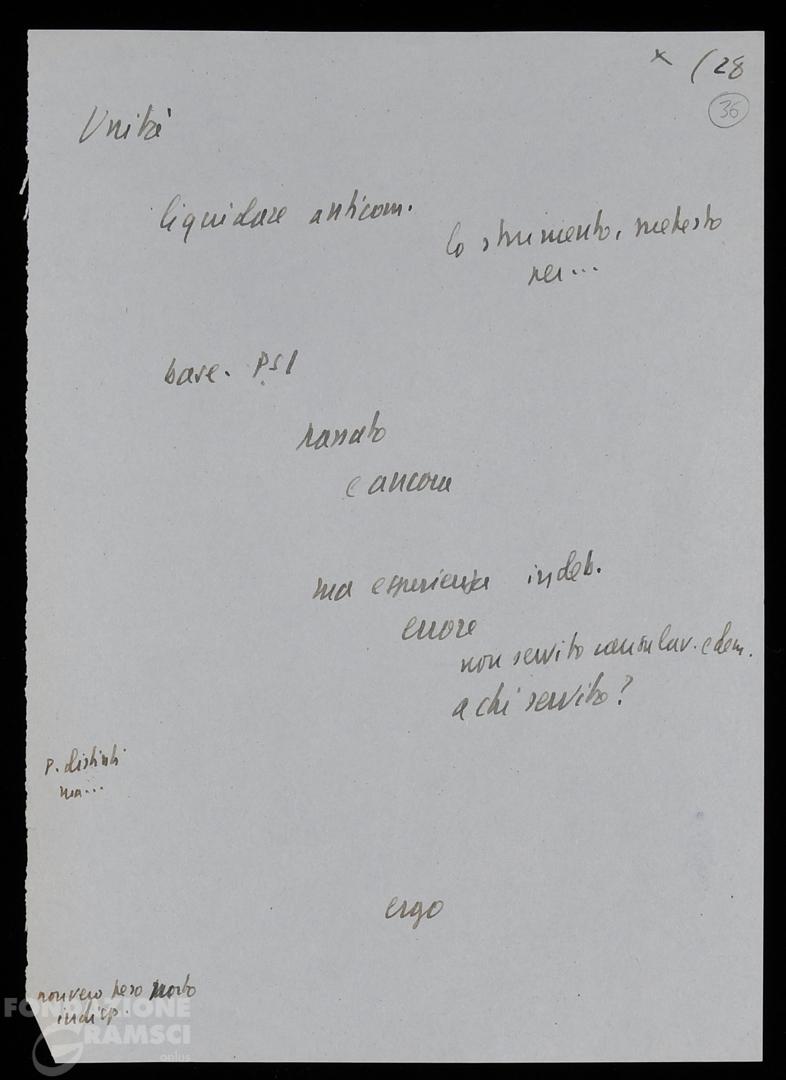 x (28
36
Unità
liquidare anticom.
lo strumento, pretesto
per...
base. PSI
passato
e ancora
ma esperienza indeb.
errore
non servito lav. e dem.
a chi servito?
P. distinti
ma...
ergo
non vero peso morto
indisp.
FONDAZIONE
GRAMSCI
onlus